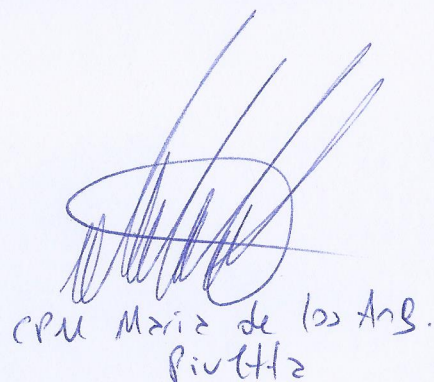 CPM Maria de los Ang.
Pivetta